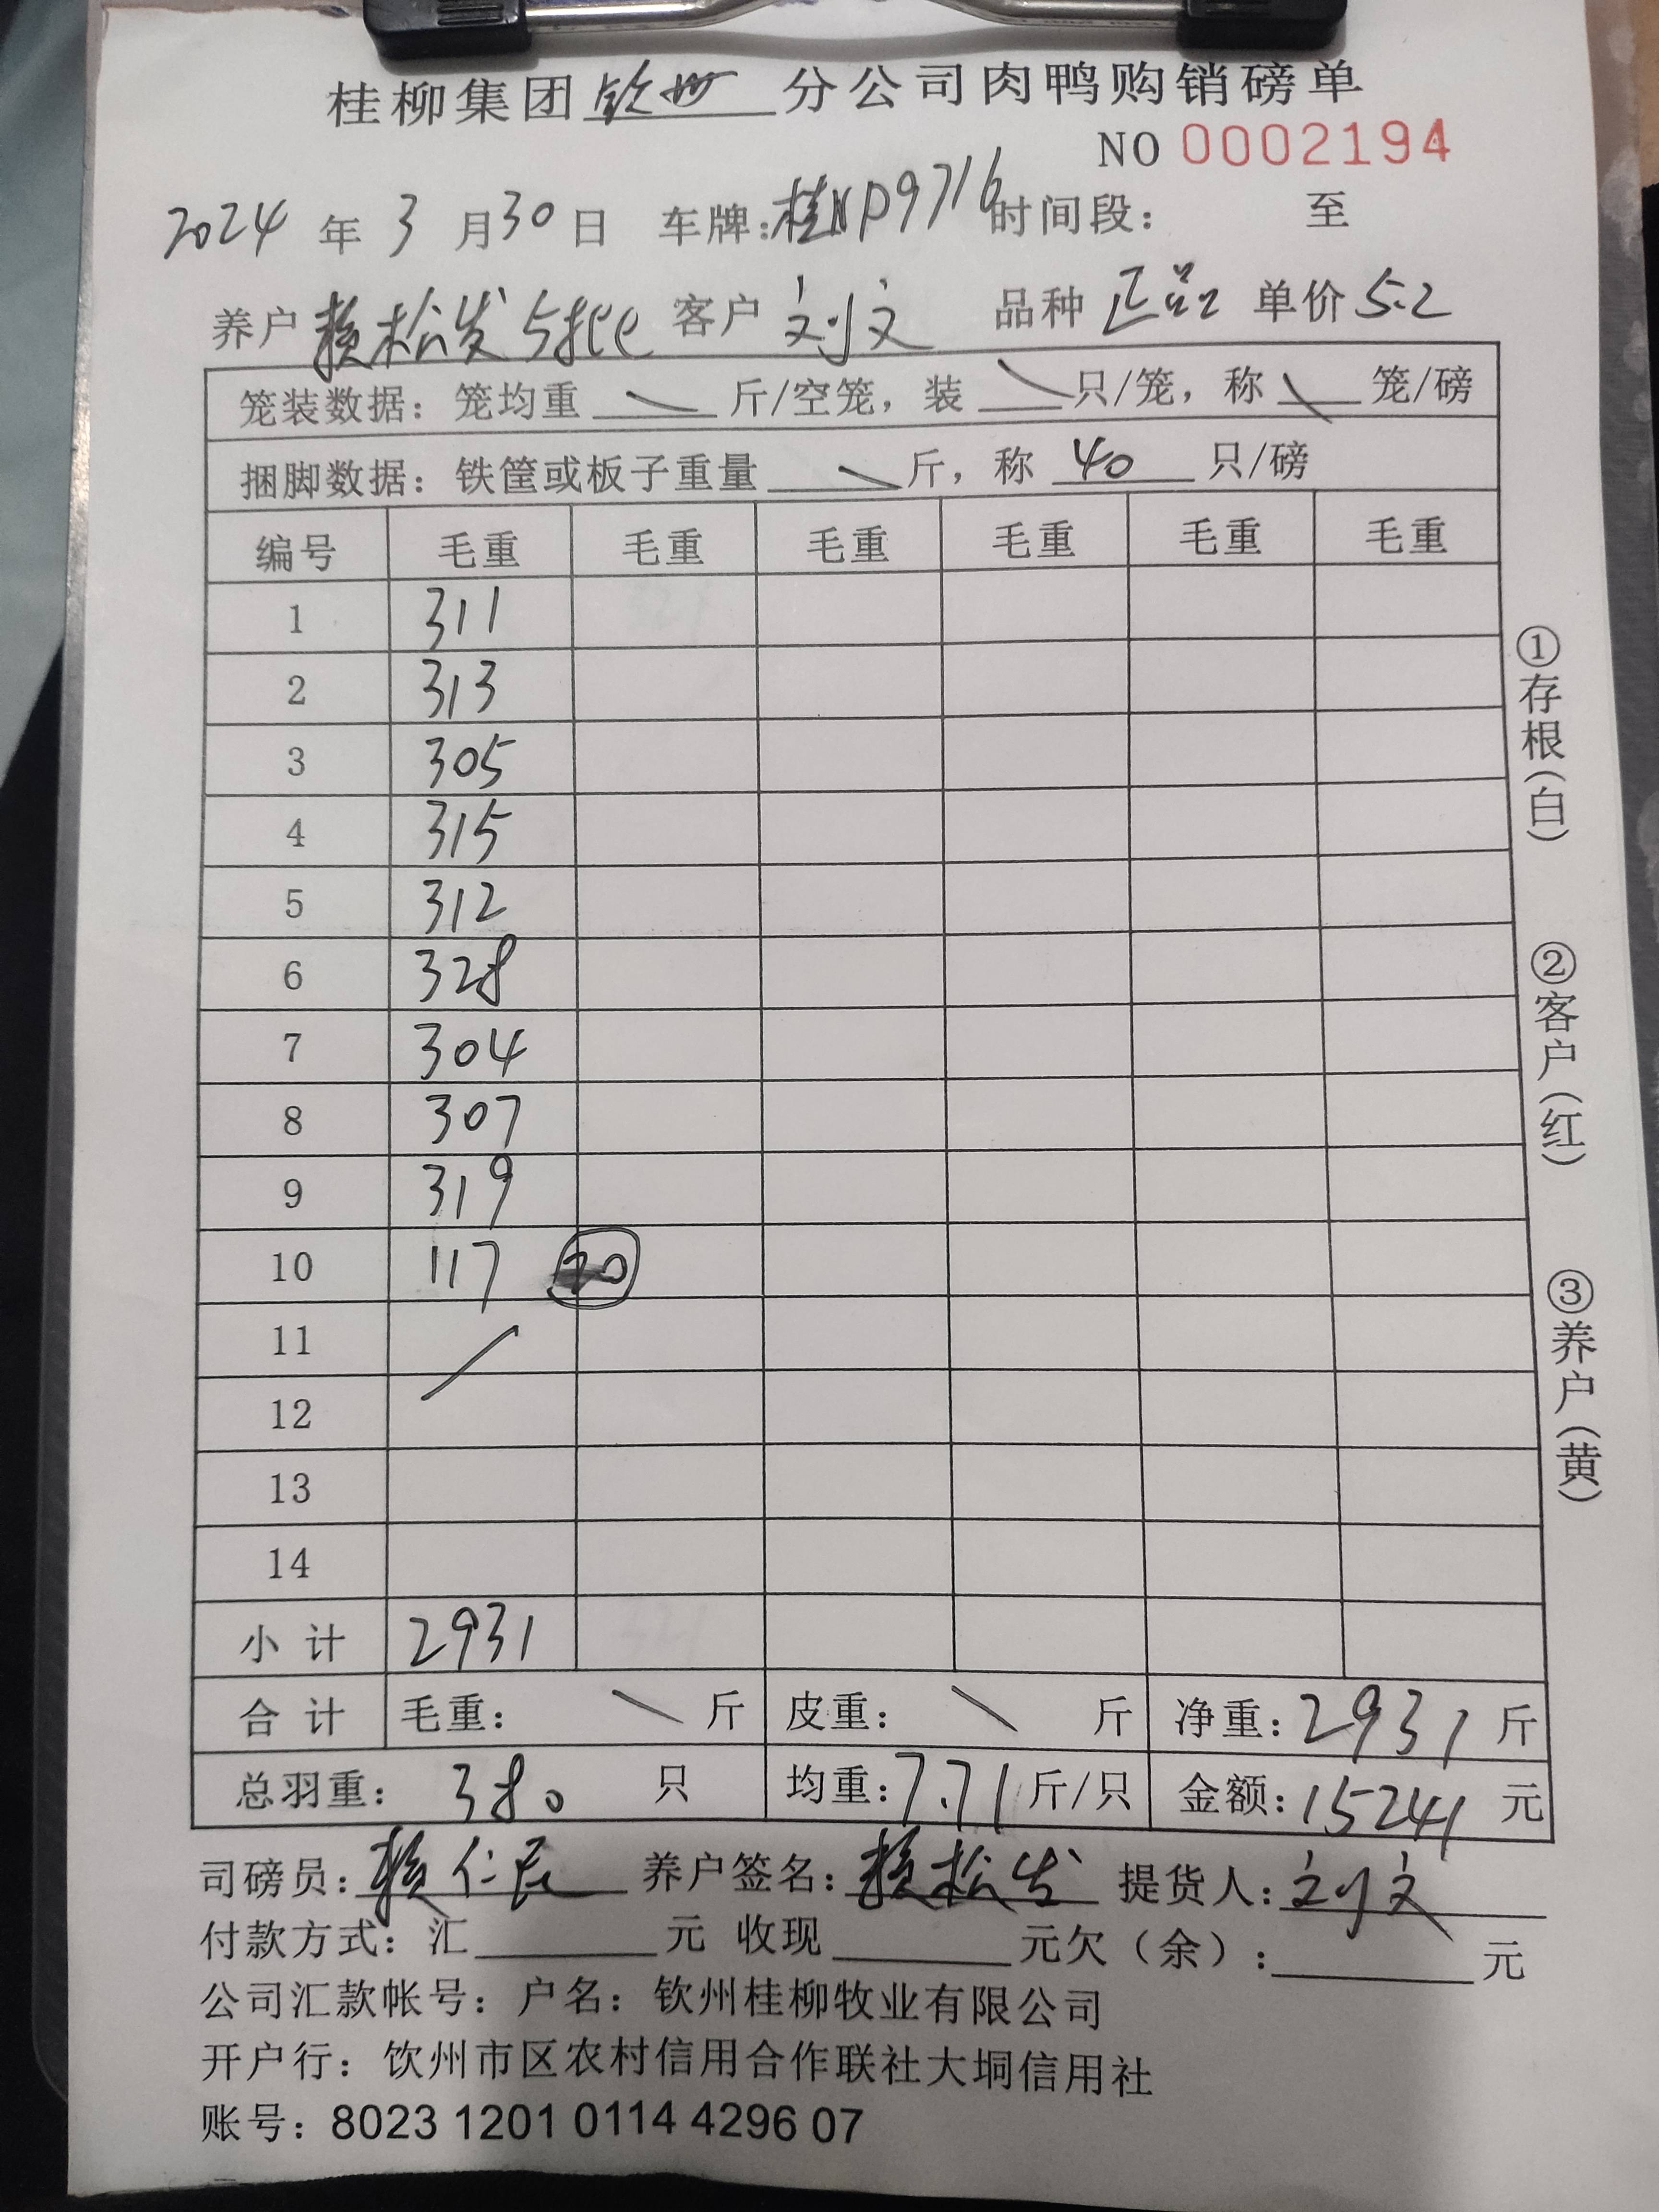 桂柳集团钦州分公司肉鸭购销磅单
NO 0002194
2024年3月30日 车牌:桂NP9716时间段: 至
养户 赖松发5批 客户 刘文 品种 正品 单价 5.2
笼装数据:笼均重 \ 斤/空笼,装 \ 只/笼,称 \ 笼/磅
捆脚数据:铁筐或板子重量 \ 斤,称 40 只/磅
编号 毛重 毛重 毛重 毛重 毛重 毛重
1 311
2 313
3 305
4 315
5 312
6 328
7 304
8 307
9 319
10 117 20
11 /
12
13
14
小计 2931
合计 毛重: \ 斤 皮重: \ 斤 净重:2931斤
总羽重: 380 只 均重:7.71斤/只 金额:15241元
司磅员:赖仁 养户签名:赖松发 提货人:刘文
付款方式:汇 元 收现 元欠(余): 元
公司汇款帐号:户名:钦州桂柳牧业有限公司
开户行:饮州市区农村信用合作联社大垌信用社
账号:8023 1201 0114 4296 07
①存根(白)
②客户(红)
③养户(黄)